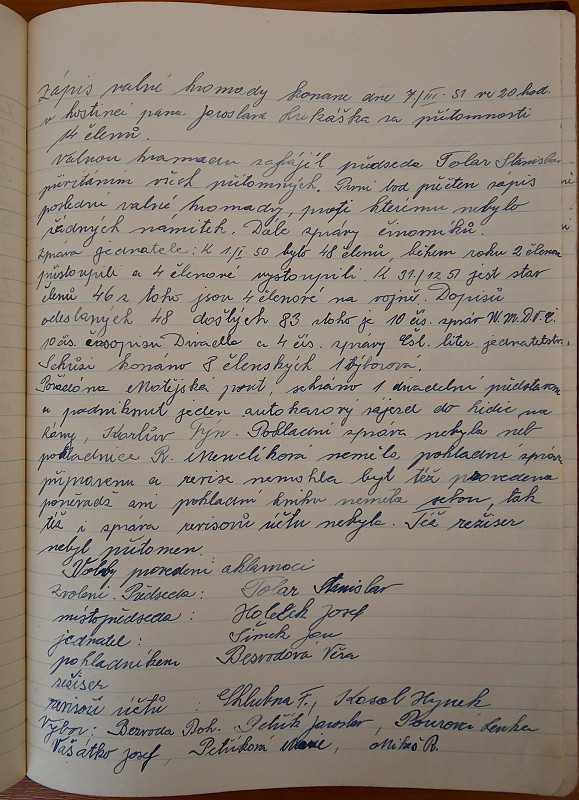 Zápis valné hromady konané dne 7./III. 51 ve 20 hod.
v hostinci pana Jaroslava Lukáška za přítomnosti
14 členů.
Valnou hromadu zahájil předseda Tolar Stanislav
přivítáním všech přítomných. První bod přečten zápis
poslední valné hromady, proti kterému nebylo
žádných námitek. Dále zprávy činovníků.
Zpráva jednatele: K 1/I 50 bylo 48 členů, během roku 2 členové
přistoupili a 4 členové vystoupili K 31./12 51 jest stav
členů 46 z toho jsou 4 členové na vojně. Dopisů
odeslaných 48 došlých 83 z toho je 10 čís. zpráv
10 čís. časopisu Divadla a 4 čís. zprávy Čsl. liter. jednatelství.
Schůzí konáno 8 členských 1 výborová.
Pořádána Matějská pouť, sehráno 1 divadelní představení
a podniknut jeden autokarový zájezd do Lidic na
Lány, Karlův Týn. Pokladní zpráva nebyla neb
pokladnice R. Menclíková neměla pokladní zprávu
připravenu a revise nemohla být též provedena
poněvadž ani pokladní knihu neměla sebou, tak
též i zpráva revisorů účtů nebyla. Též režiser
nebyl přítomen.
Volby provedeni aklamací
Zvoleni: Předseda: Tolar Stanislav
místopředseda: Holeček Josef
jednatel: Šimek Jan
pokladníkem Bezvodová Věra
režiser
revisoři účtů: Chlubna F., Kosal Hynek
Výbor: Bezvoda Boh. Petřík Jaroslav, Pourová Lenka
Vašátko Josef, Petříková Marie, Mikeš R.